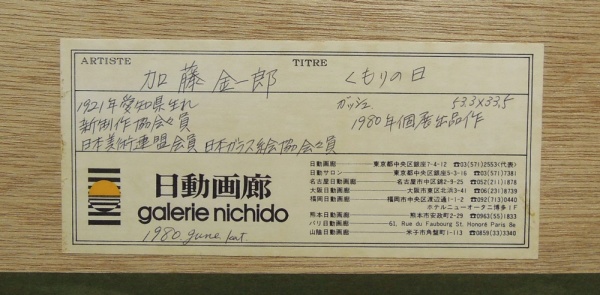 ARTISTE TITRE
加藤金一郎 くもりの日
1921年愛知県生れ ガッシュ 53.3×33.5
新制作協会々員 1980年個展出品作
日本美術連盟会員 日本ガラス絵協会々員
NICHIDO
日動画廊
galerie nichido
1980 June kat.
日動画廊 東京都中央区銀座7-4-12 ☎03(571)2553(代表)
日動サロン 東京都中央区銀座5-3-16 ☎03(571)7381
名古屋日動画廊 名古屋市中区錦2-9-25 ☎052(211)1878
大阪日動画廊 大阪市東区北浜3-41 ☎06(231)8739
福岡日動画廊 福岡市中央区渡辺通1-1-2 ☎092(713)0440
ホテルニューオータニ博多1F
熊本日動画廊 熊本市安政町2-29 ☎0963(55)1833
パリ日動画廊 61, Rue du Faubourg St. Honoré Paris 8e
山陰日動画廊 米子市角盤町1-113 ☎0859(33)3340